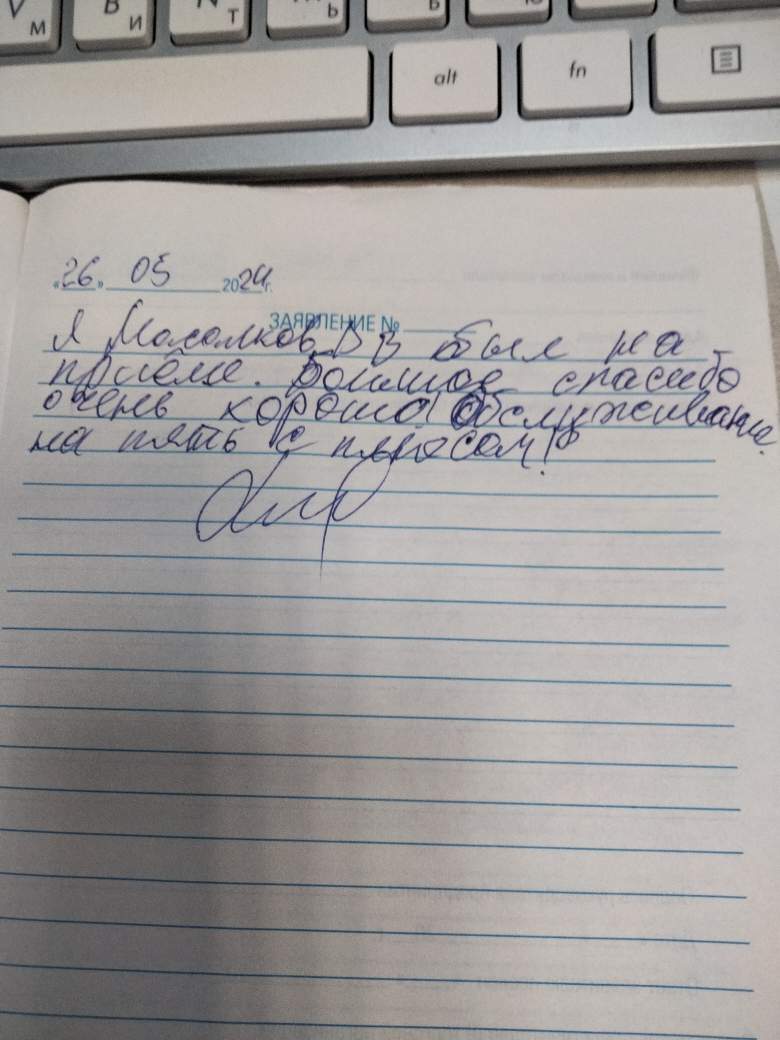 V М
В И
Т
Ь
alt
fn
«26» 05 2024г.
ЗАЯВЛЕНИЕ №
Я Мосолков Д В был на
приёме. Большое спасибо
очень хорошо обслуживание
на пять с плюсом!